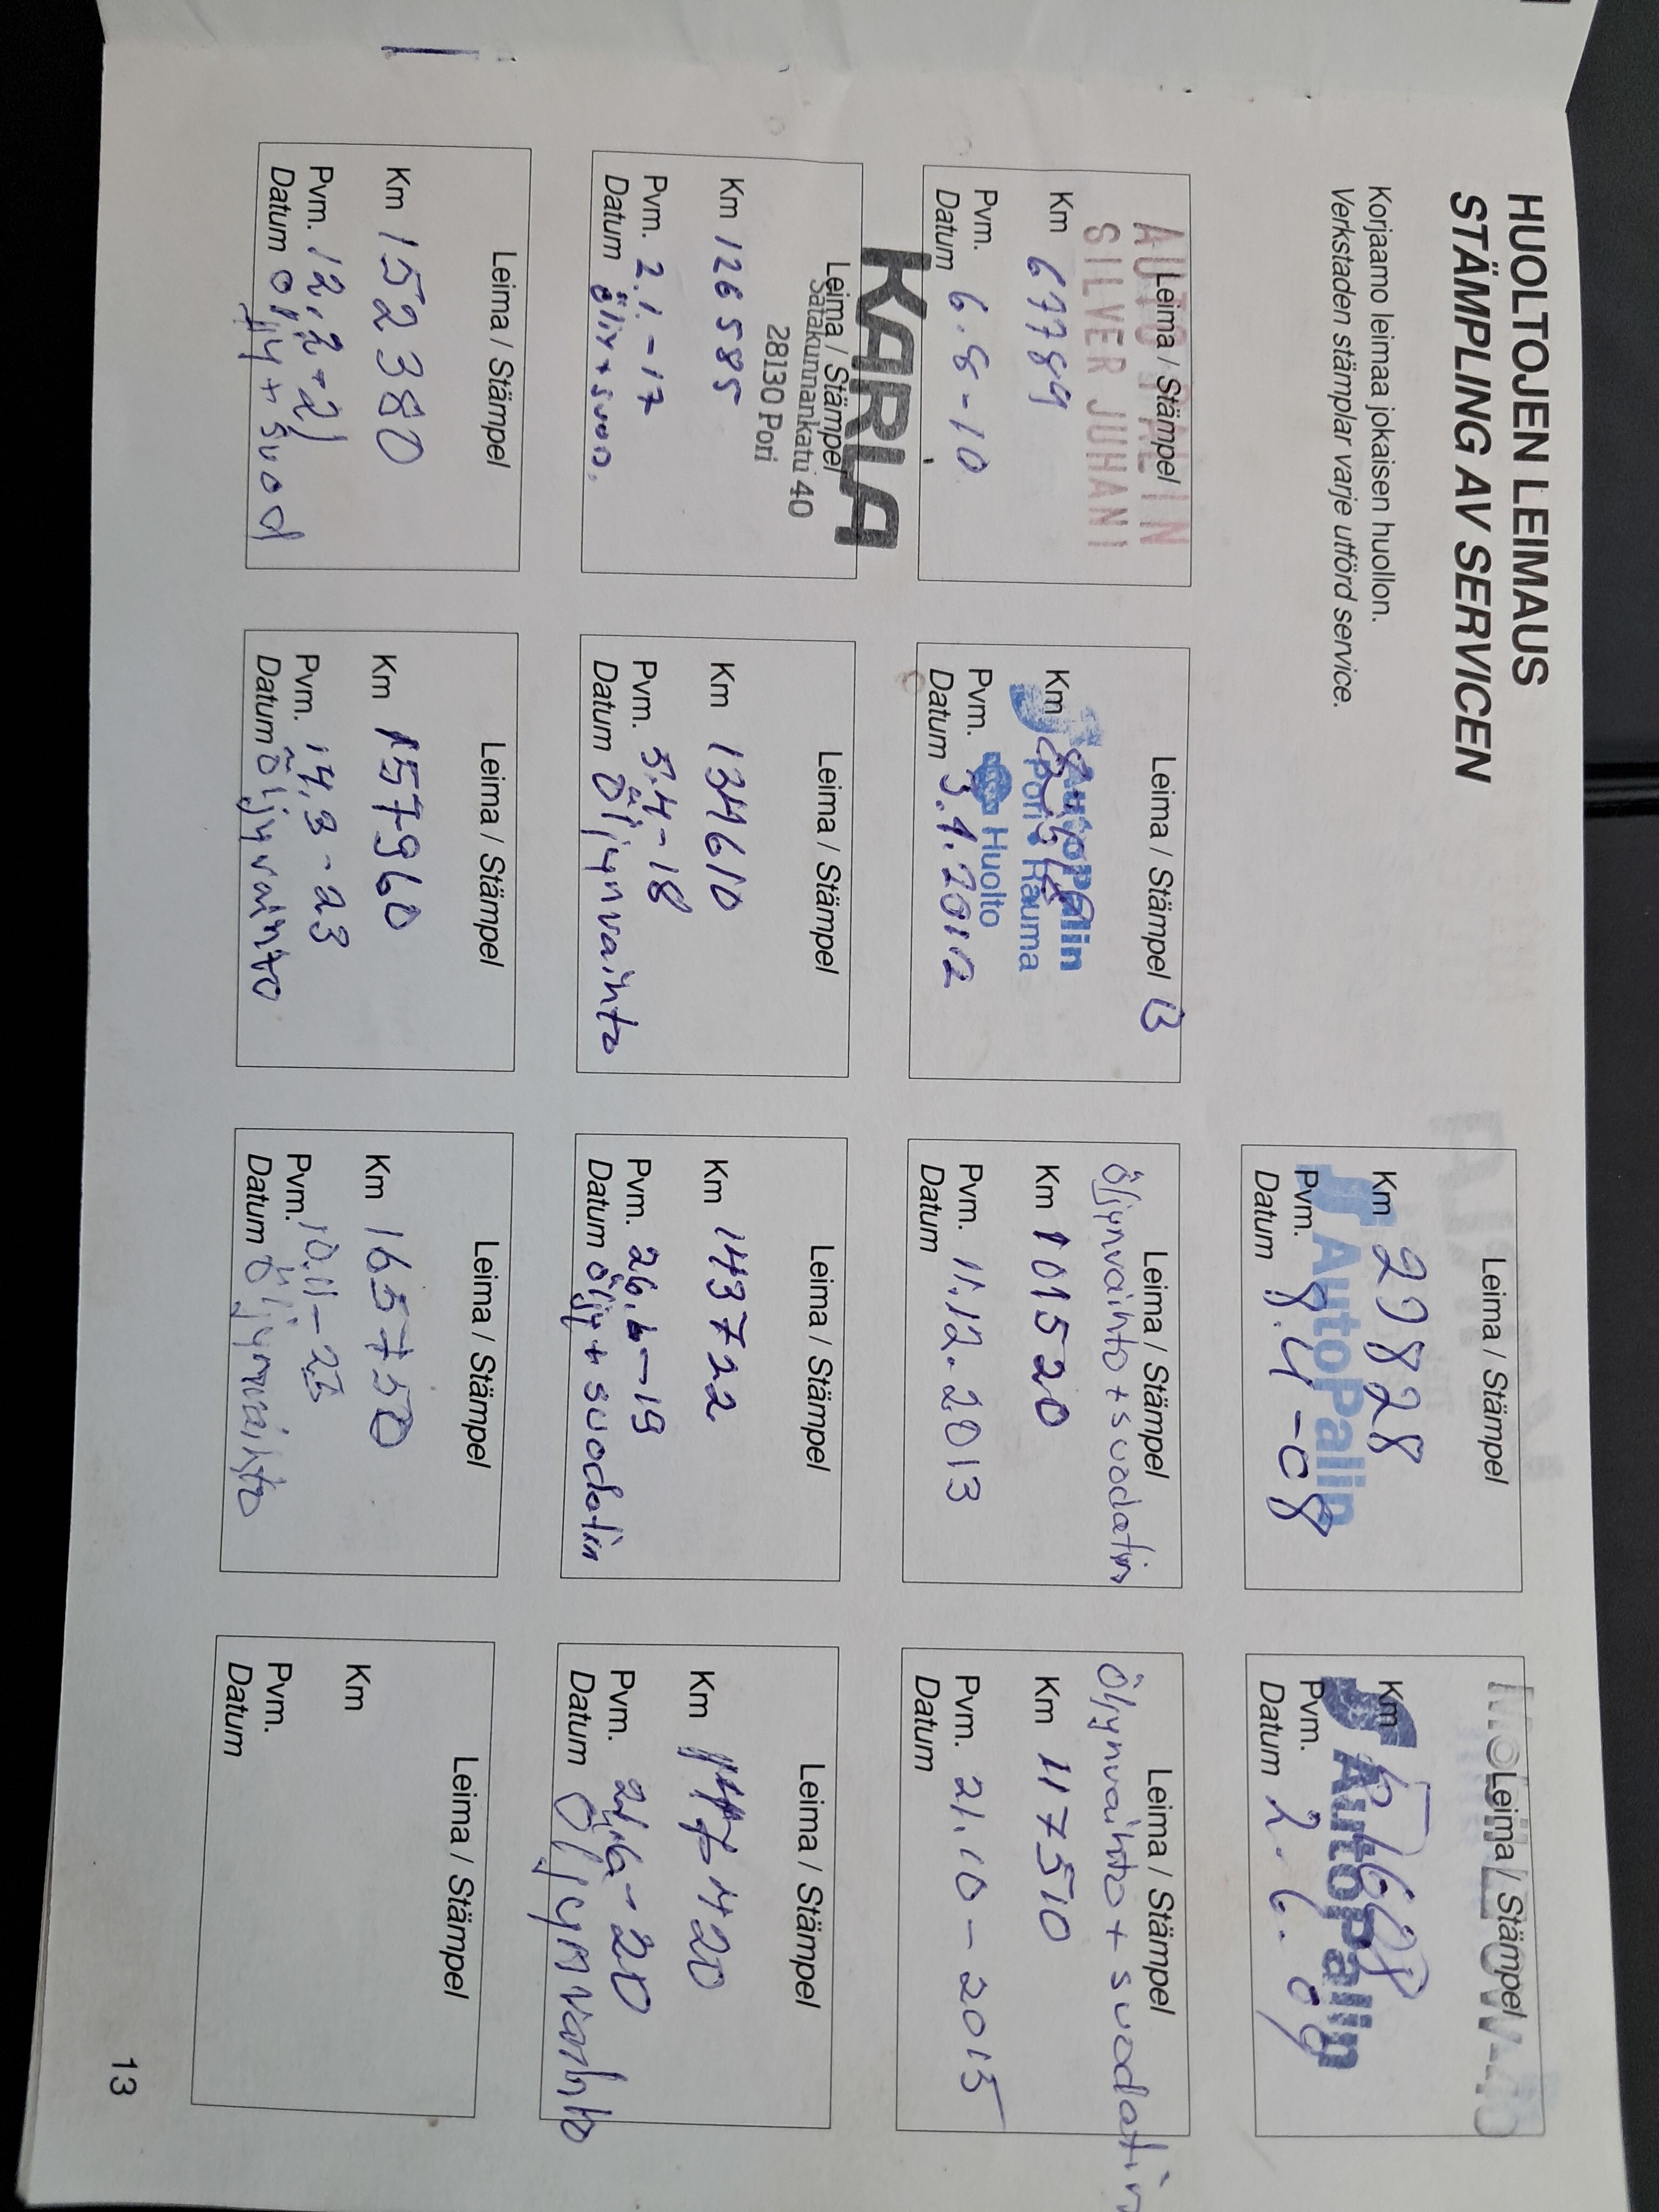 HUOLTOJEN LEIMAUS
STÄMPLING AV SERVICEN
Korjaamo leimaa jokaisen huollon.
Verkstaden stämplar varje utförd service.
Leima / Stämpel
Km 29828
AutoPalin
Pvm. 8.4-08
Datum
Leima / Stämpel
Km
AutoPalin
Pvm. 2.6.09
Datum
AUTOPALIN
Leima / Stämpel
SILVER JUHANI
Km 67789
Pvm. 6.8-10
Datum
Leima / Stämpel
AutoPalin
Km
Pori Rauma
Huolto
Pvm. 3.1.2012
Datum
Leima / Stämpel
öljynvaihto + suodatin
Km 101520
Pvm. 11.12.2013
Datum
Leima / Stämpel
öljynvaihto + suodatin
Km 117510
Pvm. 21.10-2015
Datum
KARLA
Leima / Stämpel
Satakunnankatu 40
28130 Pori
Km 126585
Pvm. 2.1.-17
Datum
Leima / Stämpel
Km 134610
Pvm. 3.4-18
Datum Öljynvaihto
Leima / Stämpel
Km 143722
Pvm. 26.6-19
Datum öljy + suodatin
Leima / Stämpel
Km 147420
Pvm. -20
Datum Öljynvaihto
Leima / Stämpel
Km 152380
Pvm. 12.2-21
Datum öljy + suod
Leima / Stämpel
Km 157960
Pvm. 14.3-23
Datum öljynvaihto
Leima / Stämpel
Km 165750
Pvm. 10.11-
Datum Öljynvaihto
Leima / Stämpel
Km
Pvm.
Datum
13